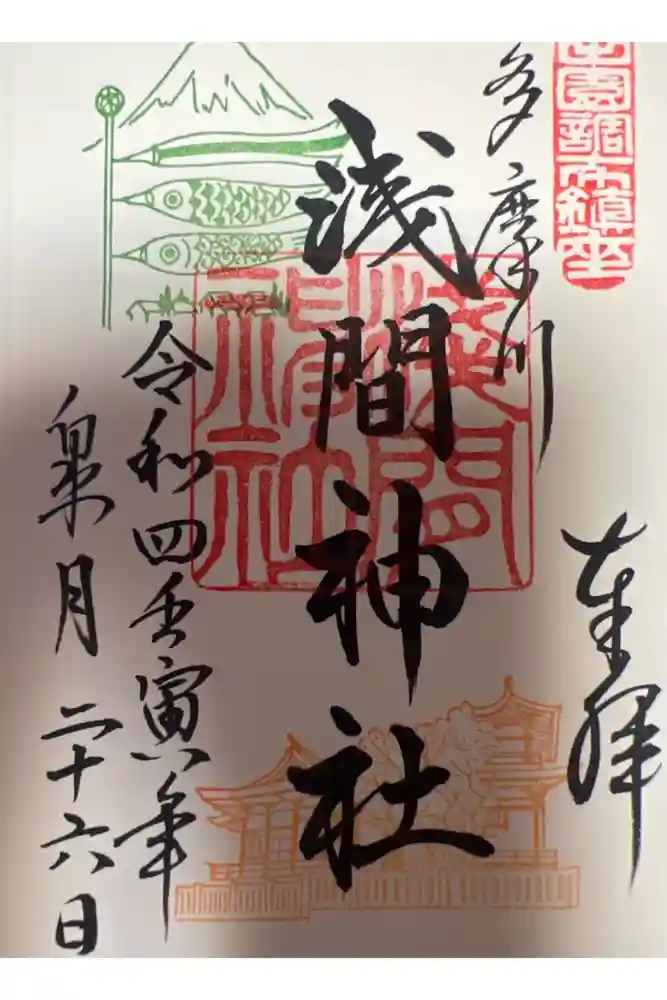 田園調布鎮座
奉拝
多摩川
浅間神社
淺間
神社
令和四壬寅年
皐月二十六日